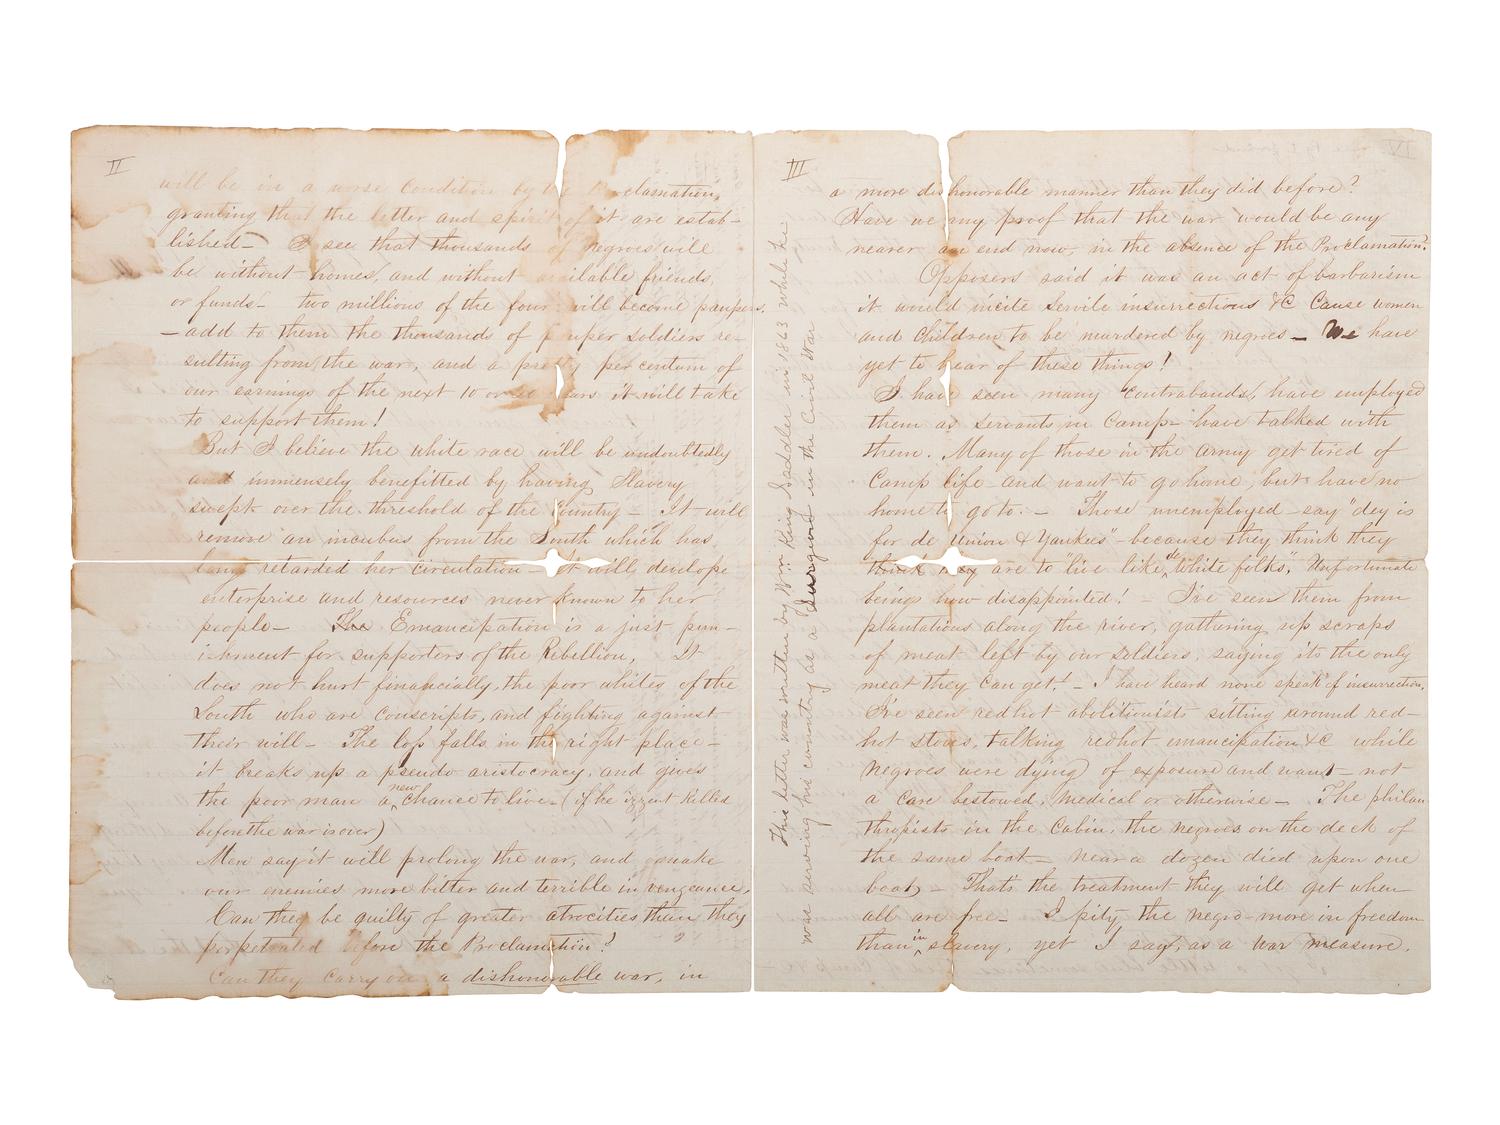 II
will be in a worse condition by the Proclamation,
granting that the letter and spirit of it are estab-
lished— I see that thousands of negroes will
be without homes, and without available friends,
or funds— two millions of the four will become paupers.
—add to them the thousands of pauper soldiers re-
sulting from the war, and a pretty per centum of
our earnings of the next 10 or 20 years it will take
to support them!
But I believe the white race will be undoubtedly
and immensely benefitted by having Slavery
swept over the threshold of the Country— It will
remove an incubus from the South which has
long retarded her circulation— It will develope
enterprise and resources never known to her
people— The Emancipation is a just pun-
ishment for supporters of the Rebellion, It
does not hurt financially, the poor whites of the
South who are conscripts, and fighting against
their will— The loss falls in the right place—
it breaks up a pseudo aristocracy, and gives
the poor man a new chance to live—(if he izzent killed
before the war is over)
Men say it will prolong the war, and make
our enemies more bitter and terrible in vengeance,
Can they be guilty of greater atrocities than they
perpetrated before the Proclamation?
Can they carry on a dishonorable war, in
This letter was written by Wm King Saddler in 1863 while he
was serving his country as a Surgeon in the Civil War
III
a more dishonorable manner than they did before?
Have we any proof that the war would be any
nearer an end now, in the absence of the Proclamation?
Opposers said it was an act of barbarism
it would incite servile insurrections &c Cause women
and children to be murdered by negroes— We have
yet to hear of these things!
I have seen many "contrabands", have employed
them as servants in Camp— have talked with
them. Many of those in the army get tired of
Camp life and want to go home, but have no
home to go to.— Those unemployed say "dey is
for de Union & Yankees" because they think they
think they are to "live like de white folks", Unfortunate
beings how disappointed!— I've seen them from
plantations along the river, gathering up scraps
of meat left by our soldiers, saying its the only
meat they can get!— I have heard none speak of insurrection.
I've seen redhot abolitionists sitting around red-
hot stoves, talking redhot emancipation &c while
negroes were dying of exposure and want— not
a care bestowed, medical or otherwise— The philan
thropists in the Cabin, the negroes on the deck of
the same boat— near a dozen died upon one
boat— That's the treatment they will get when
all are free— I pity the negro more in freedom
than in slavery, yet I say, as a war measure.